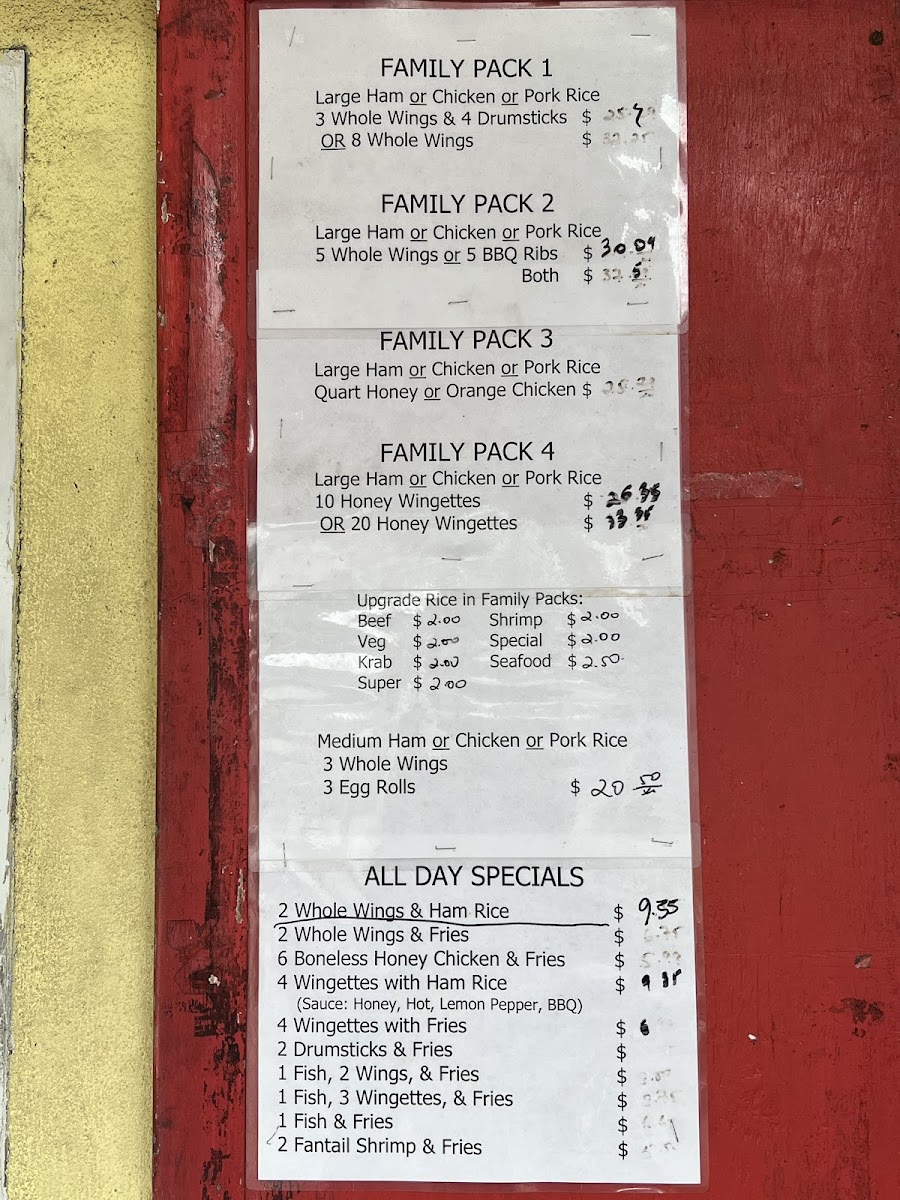 FAMILY PACK 1
Large Ham or Chicken or Pork Rice
3 Whole Wings & 4 Drumsticks $
OR 8 Whole Wings $
FAMILY PACK 2
Large Ham or Chicken or Pork Rice
5 Whole Wings or 5 BBQ Ribs $ 30.09
Both $
FAMILY PACK 3
Large Ham or Chicken or Pork Rice
Quart Honey or Orange Chicken $
FAMILY PACK 4
Large Ham or Chicken or Pork Rice
10 Honey Wingettes $ 26.35
OR 20 Honey Wingettes $
Upgrade Rice in Family Packs:
Beef $ 2.00 Shrimp $ 2.00
Veg $ 2.00 Special $ 2.00
Krab $ 2.00 Seafood $ 2.50
Super $ 2.00
Medium Ham or Chicken or Pork Rice
3 Whole Wings
3 Egg Rolls $ 20 50
ALL DAY SPECIALS
2 Whole Wings & Ham Rice $ 9.35
2 Whole Wings & Fries $
6 Boneless Honey Chicken & Fries $
4 Wingettes with Ham Rice $
(Sauce: Honey, Hot, Lemon Pepper, BBQ)
4 Wingettes with Fries $
2 Drumsticks & Fries $
1 Fish, 2 Wings, & Fries $
1 Fish, 3 Wingettes, & Fries $
1 Fish & Fries $
2 Fantail Shrimp & Fries $